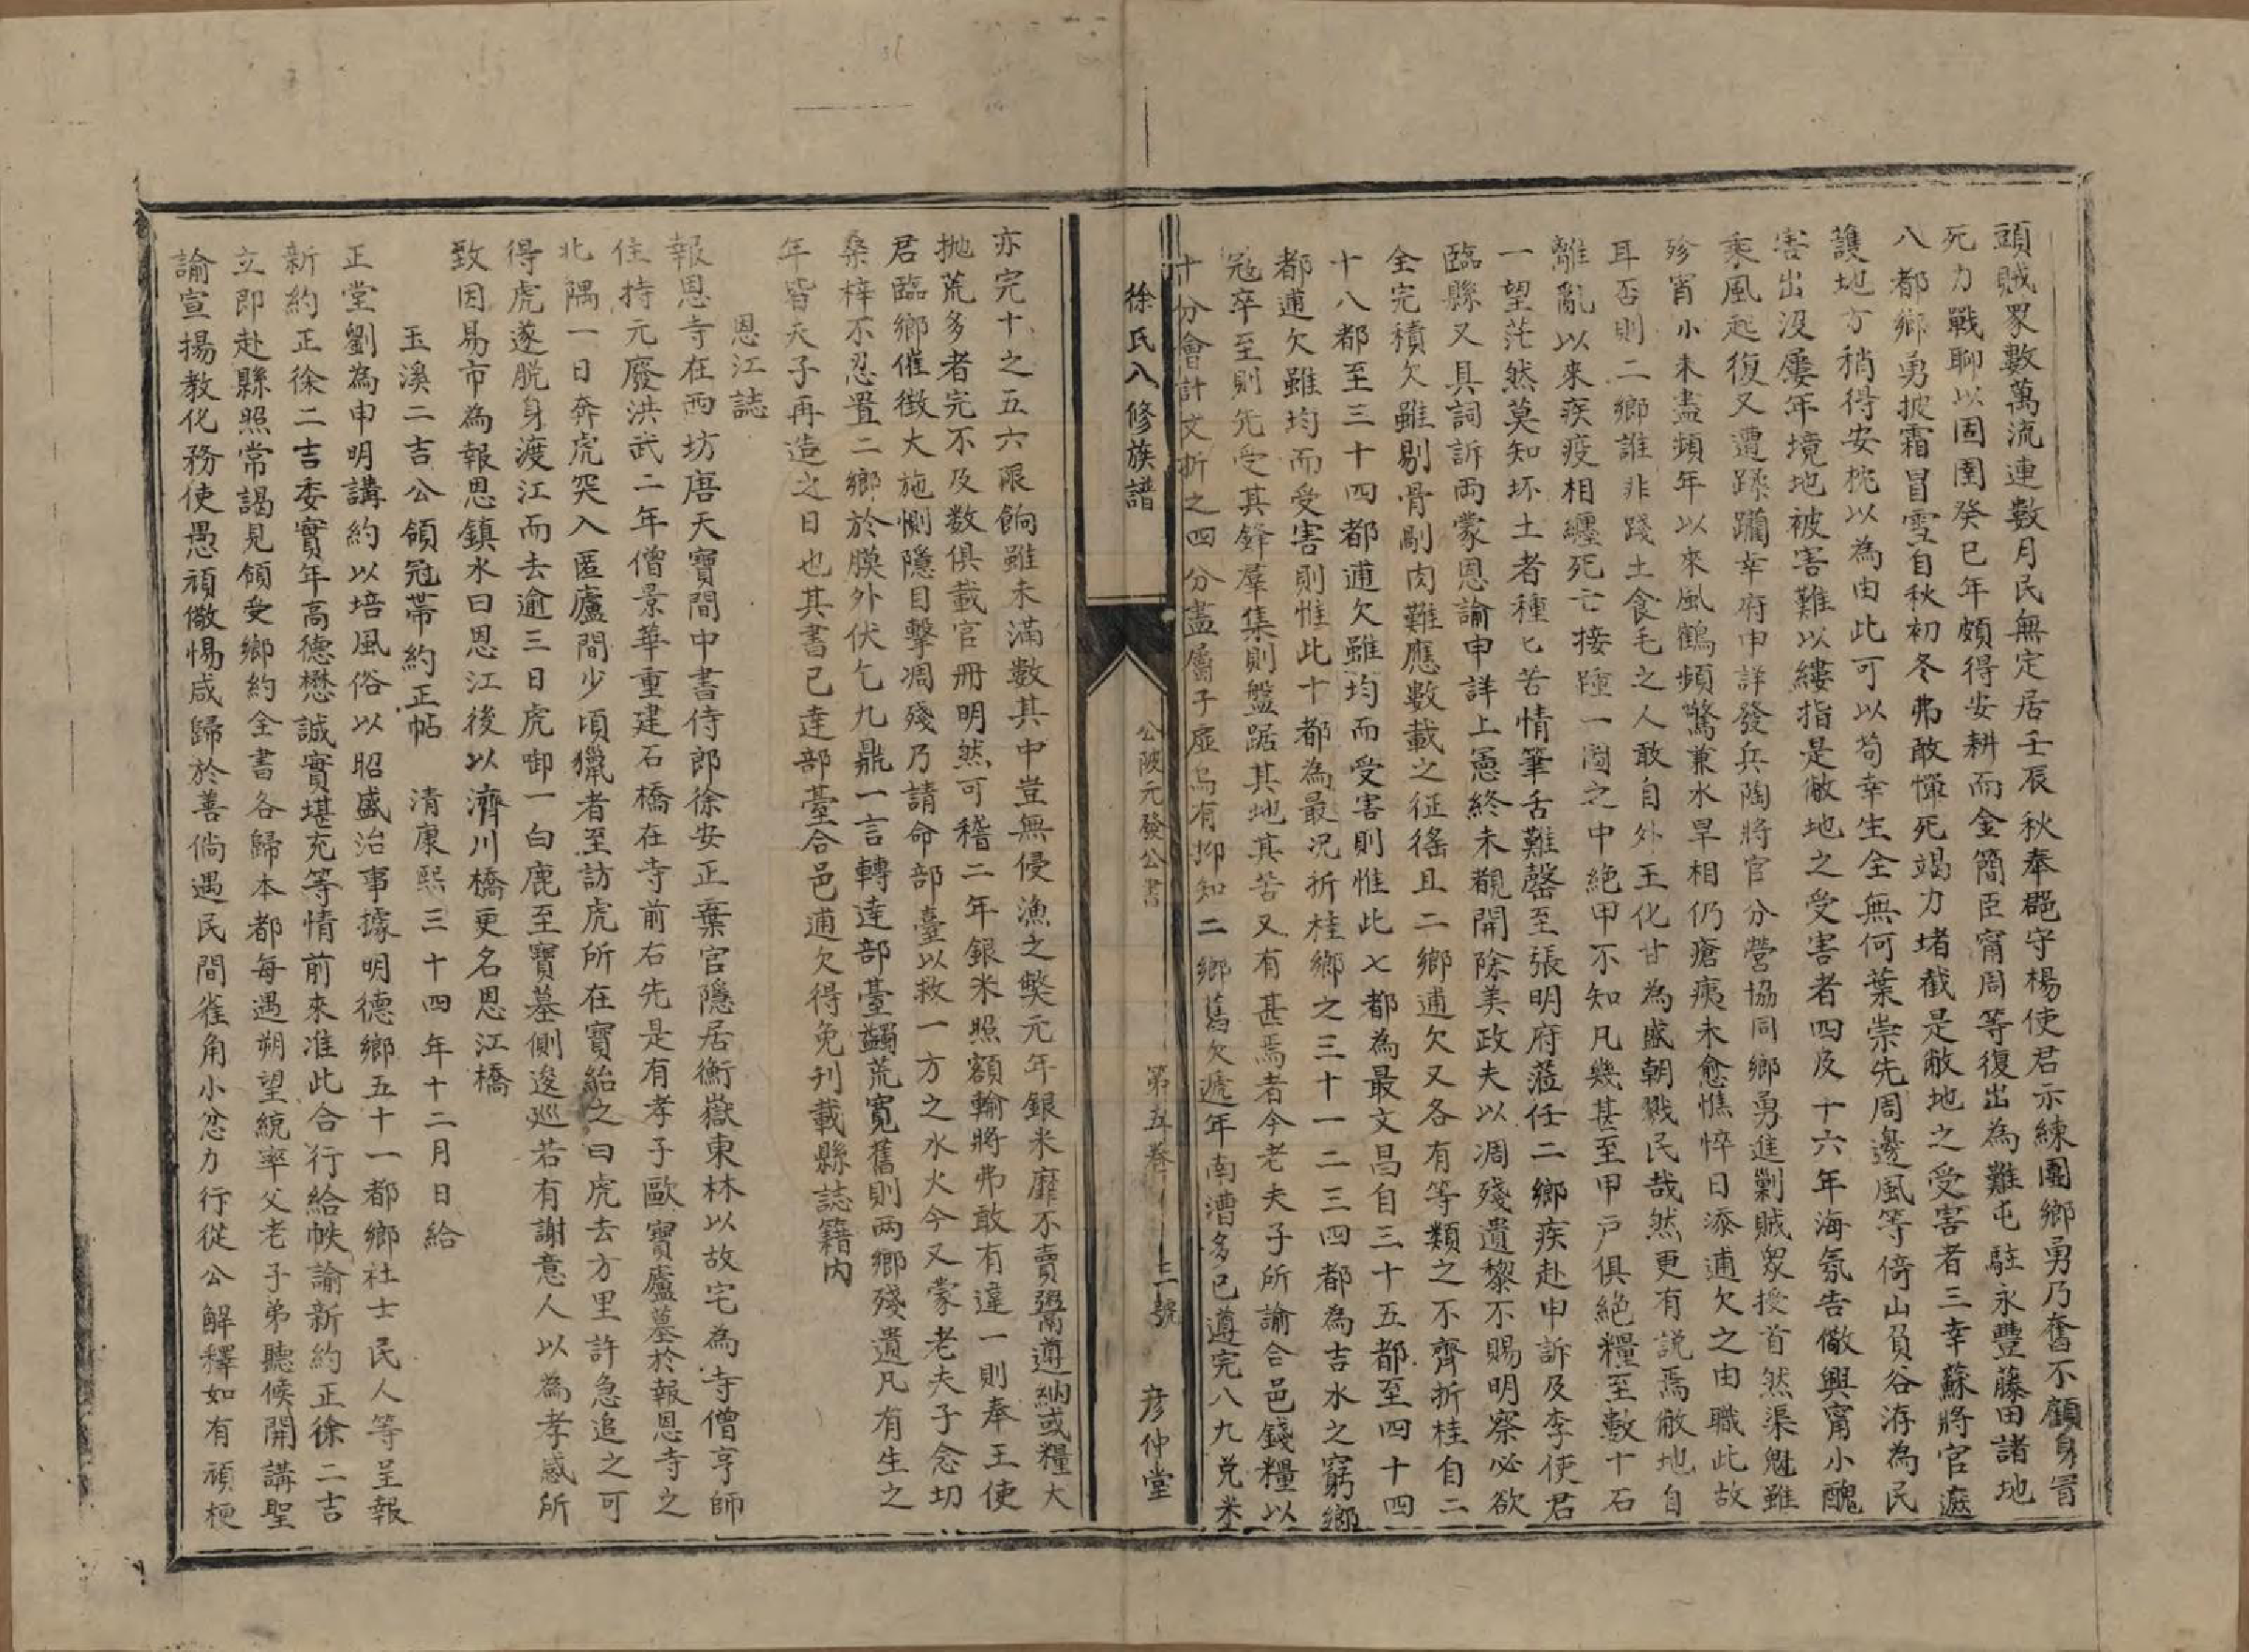 頭賊眾數萬流連數月民無定居壬辰秋奉郡守楊使君示練團鄉勇乃奮不顧身冒
死力戰聊以固圉癸巳年頗得安耕而金簡臣甯周等復出為難屯駐永豐藤田諸地
八都鄉勇披霜冒雪自秋初冬弗敢憚死竭力堵截是敝地之受害者三幸蘇將官遮
護地方稍得安枕以為由此可以苟幸生全無何葉崇先周邊風等倚山負谷洊為民
害出沒屢年境地被害難以縷指是敝地之受害者四及十六年海氛告儆興甯小醜
乘風起復又遭蹂躪幸府申詳發兵陶將官分營協同鄉勇進剿賊眾授首然渠魁雖
殄宵小未盡頻年以來風鶴頻驚兼水旱相仍瘡痍未愈憔悴日添逋欠之由職此故
耳否則二鄉誰非踐土食毛之人敢自外王化甘為盛朝戮民哉然更有説焉敝地自
離亂以來疾疫相纏死亡接踵一圖之中絶甲不知凡幾甚至甲戶俱絶糧至數十石
一望茫然莫知坏土者種匕苦情筆舌難罄至張明府蒞任二鄉疾赴申訴及李使君
臨縣又具詞訴両蒙恩諭申詳上憲終未覩開除美政夫以凋殘遺黎不賜明察必欲
全完積欠雖剔骨剮肉難應數載之征徭且二鄉逋欠又各有等類之不齊折桂自二
十八都至三十四都逋欠雖均而受害則惟此七都為最文昌自三十五都至四十四
都逋欠雖均而受害則惟此十都為最況折桂鄉之三十一二三四都為吉水之窮鄉
冦卒至則先受其鋒羣集則盤踞其地其苦又有甚焉者今老夫子所諭合邑錢糧以
十分會計文折之四分盡屬子虛烏有抑知二鄉舊欠遞年南漕多已遵完八九兌米
徐氏八修族譜
公陂元發公書
第五卷
二號
彦仲堂
亦完十之五六限餉雖未滿數其中豈無侵漁之獘元年銀米靡不賣鬻遵納或糧大
抛荒多者完不及数俱載官冊明然可稽二年銀米照額輸將弗敢有違一則奉王使
君臨鄉催徴大施惻隱目擊凋殘乃請命部臺以救一方之水火今又蒙老夫子念切
桑梓不忍置二鄉於膜外伏乞九鼎一言轉達部臺蠲荒寛舊則两鄉殘遺凡有生之
年皆天子再造之日也其書已達部臺合邑逋欠得免刋載縣誌籍内
恩江誌
報恩寺在西坊唐天寶間中書侍郎徐安正棄官隱居衡嶽東林以故宅為寺僧亨師
住持元廢洪武二年僧景華重建石橋在寺前右先是有孝子歐寶廬墓於報恩寺之
北隅一日奔虎突入匿廬間少頃獵者至訪虎所在寶紿之曰虎去方里許急追之可
得虎遂脱身渡江而去逾三日虎啣一白鹿至寶墓側逡巡若有謝意人以為孝感所
致因易市為報恩鎮水曰恩江後以濟川橋更名恩江橋
玉溪二吉公領冠帶約正帖　清康熙三十四年十二月日給
正堂劉為申明講約以培風俗以昭盛治事據明德鄉五十一都鄉社士民人等呈報
新約正徐二吉委實年高德懋誠實堪充等情前來准此合行給帙諭新約正徐二吉
立即赴縣照常謁見領受鄉約全書各歸本都每遇朔望統率父老子弟聽候開講聖
諭宣揚教化務使愚頑儆惕咸歸於善倘遇民間雀角小忿力行從公解釋如有頑梗